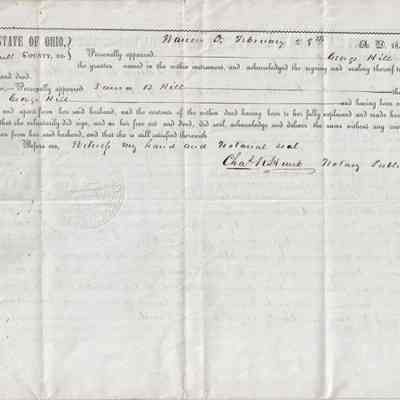 STATE OF OHIO,} Warren O. February 28th A. D. 18
ull COUNTY, ss. Personally appeared George Hill
the grantor named in the within instrument, and acknowledged the signing and sealing thereof to
and deed.
Personally appeared B Hill the
George Hill and having been
and apart from her said husband, and the contents of the within deed having been to her fully explained and made known
that she voluntarily did sign, and as her free act and deed, did seal, acknowledge and deliver the same without any
from her said husband, and that she is still satisfied therewith.
Before me, Witness my hand and Notarial seal
Chas Notary Public